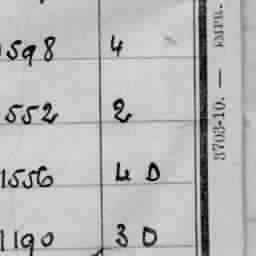 1598 4
552 2
1556 4 0
1190 3 0
3703-10. — ИМРК.